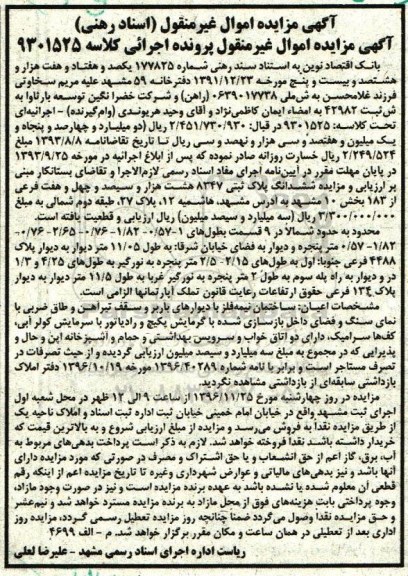 آگهی مزایده اموال غیرمنقول (اسناد رهنی)
آگهی مزایده اموال غیرمنقول پرونده اجرائی کلاسه ۹۳۰۱۵۲۵
بانک اقتصاد نوین به استناد سند رهنی شماره ۱۷۷۸۲۵ یکصد و هفتاد و هفت هزار و
هشتصد و بیست و پنج مورخه ۱۳۹۱/۱۲/۲۳ دفترخانه ۵۹ مشهد علیه مریم سخاوتی
فرزند غلامحسن به ش‌ملی ۰۶۳۹۰۱۷۷۳۸ (راهن) و شرکت خضرا نگین توسعه بارثاوا به
ش‌ثبت ۴۲۹۸۲ به امضاء ایمان کاظمی‌نژاد و آقای وحید هریوندی (وام‌گیرنده) - اجرائیه‌ای
تحت کلاسه: ۹۳۰۱۵۲۵ در قبال: ۲/۴۵۱/۷۳۰/۹۳۰ ریال (دو میلیارد و چهارصد و پنجاه و
یک میلیون و هفتصد و سی هزار و نهصد و سی ریال تا تاریخ تقاضانامه ۱۳۹۳/۸/۸ مبلغ
۲/۲۴۹/۵۲۴ ریال خسارت روزانه صادر نموده که پس از ابلاغ اجرائیه در مورخه ۱۳۹۳/۹/۲۵
در پایان مهلت مقرر در آیین‌نامه اجرای مفاد اسناد رسمی لازم‌الاجرا و تقاضای بستانکار مبنی
بر ارزیابی و مزایده ششدانگ پلاک ثبتی ۸۳۴۷ هشت هزار و سیصد و چهل و هفت فرعی
از ۱۸۳ بخش ۱۰ مشهد به آدرس مشهد، هاشمیه ۱۲، پلاک ۲۷، طبقه دوم شمالی به مبلغ
۳/۳۰۰/۰۰۰/۰۰۰ ریال (سه میلیارد و سیصد میلیون) ریال ارزیابی و قطعیت یافته است.
محدود به حدود شمالاً در ۹ قسمت بطولهای ۱-۰/۵۷-۱/۸۲-۰/۷۶-۲/۶۵-۰/۷۶-
۱/۸۲-۰/۵۷ متر پنجره و دیوار به فضای خیابان شرقا: به طول ۱۱/۰۵ متر دیوار به دیوار پلاک
۴۴۸۸ فرعی جنوبا: اول به طول‌های ۲/۱۵-۲/۵ متر پنجره به نورگیر به طول‌های ۴/۲۵ و ۱/۳
در و دیوار به راه پله سوم به طول ۲ متر پنجره به نورگیر غربا به طول ۱۱/۵ متر دیوار به دیوار
پلاک ۱۳۴ فرعی حقوق ارتفاعات رعایت قانون تملک آپارتمانها الزامی است.
مشخصات اعیان: ساختمان نیمه‌فلز با دیوارهای باربر و سقف تیرآهن و طاق ضربی با
نمای سنگ و فضای داخل بازسازی شده با گرمایش پکیج و رادیاتور با سرمایش کولر آبی،
کف‌ها سرامیک، دارای دو اتاق خواب و سرویس بهداشتی و حمام و آشپزخانه اپن و حال و
پذیرایی که در مجموع به مبلغ سه میلیارد و سیصد میلیون ارزیابی گردیده و از حیث تصرفات در
تصرف مستاجر است و برابر با نامه شماره ۱۳۹۶/۴۰۲۸۹ مورخه ۱۳۹۶/۱۰/۱۹ دفتر املاک
بازداشتی سابقه‌ای از بازداشتی مشاهده نگردید.
مزایده در روز چهارشنبه مورخ ۱۳۹۶/۱۱/۲۵ از ساعت ۹ الی ۱۲ ظهر در محل شعبه اول
اجرای ثبت مشهد واقع در خیابان امام خمینی خیابان ثبت اداره ثبت اسناد و املاک ناحیه یک
از طریق مزایده نقدا به فروش می‌رسد و مزایده از مبلغ ارزیابی شروع و به بالاترین قیمت که
خریدار داشته باشد نقدا فروخته خواهد شد. لازم به ذکر است پرداخت بدهی‌های مربوط به
آب، برق، گاز اعم از حق انشعاب و یا حق اشتراک و مصرف در صورتی که مورد مزایده دارای
آنها باشد و نیز بدهی‌های مالیاتی و عوارض شهرداری وغیره تا تاریخ مزایده اعم از اینکه رقم
قطعی آن معلوم شده یا نشده باشد به عهده برنده مزایده است و نیز در صورت وجود مازاد،
وجوه پرداختی بابت هزینه‌های فوق از محل مازاد به برنده مزایده مسترد خواهد شد و نیم‌عشر
و حق مزایده نقدا وصول می‌گردد ضمنا چنانچه روز مزایده تعطیل رسمی گردد، مزایده روز
اداری بعد از تعطیلی در همان ساعت و مکان مقرر برگزار خواهد شد. م - الف ۴۶۹۹
ریاست اداره اجرای اسناد رسمی مشهد - علیرضا لعلی